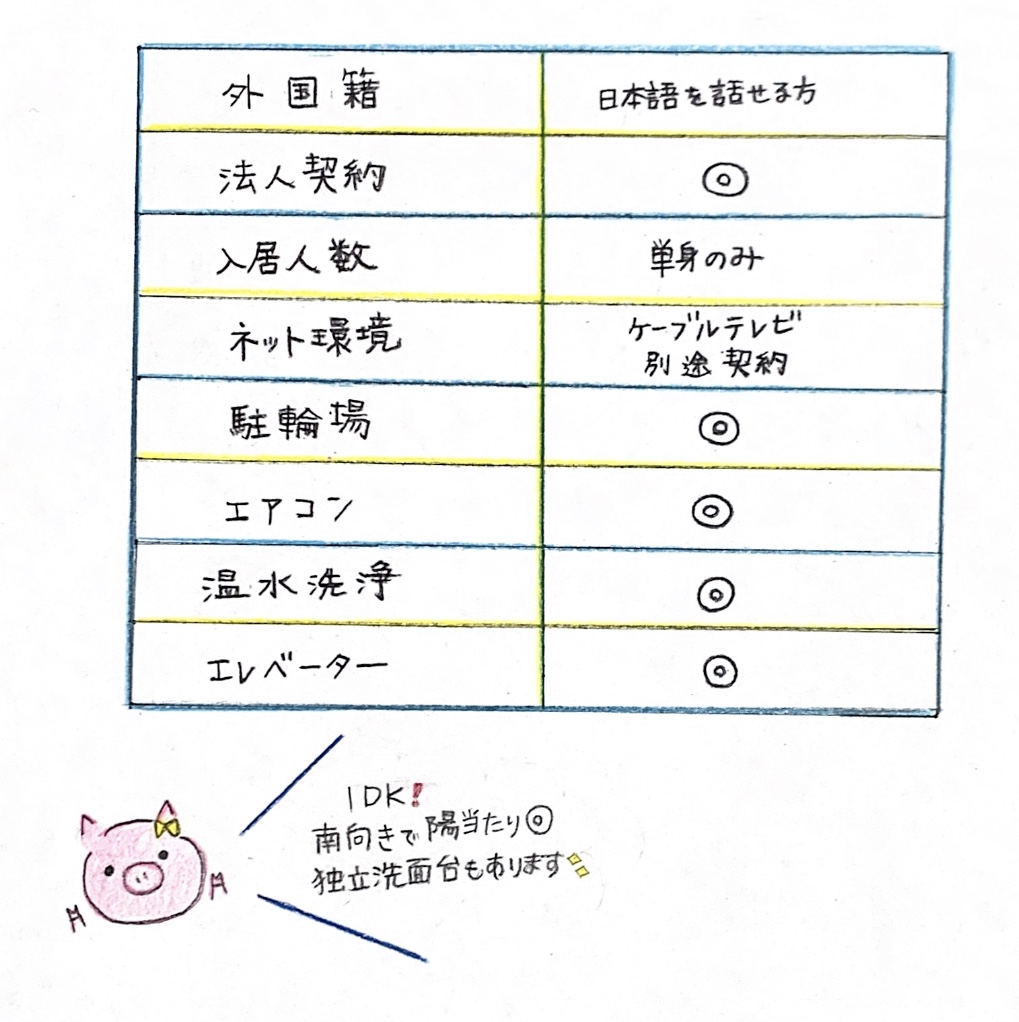 外国籍 日本語を話せる方
法人契約 ◎
入居人数 単身のみ
ネット環境 ケーブルテレビ
別途契約
駐輪場 ◎
エアコン ◎
温水洗浄 ◎
エレベーター ◎
1DK!
南向きで陽当たり◎
独立洗面台もあります